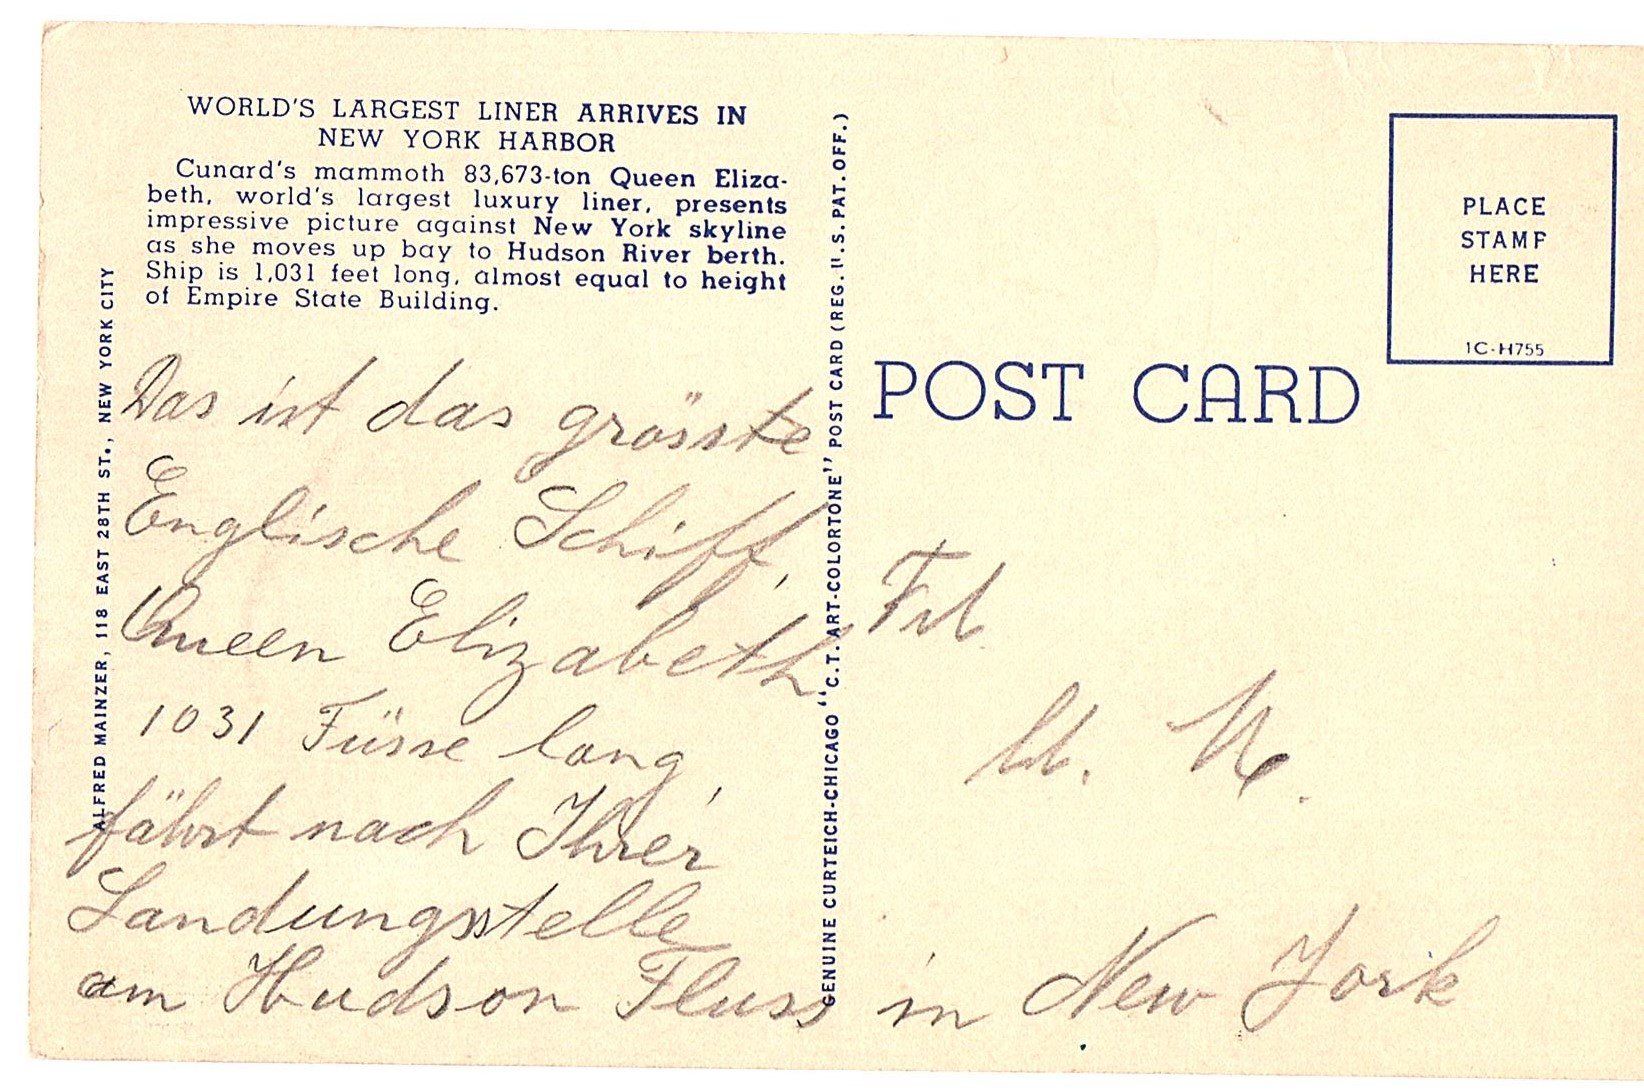 WORLD'S LARGEST LINER ARRIVES IN
NEW YORK HARBOR
Cunard's mammoth 83,673-ton Queen Eliza-
beth, world's largest luxury liner, presents
impressive picture against New York skyline
as she moves up bay to Hudson River berth.
Ship is 1,031 feet long, almost equal to height
of Empire State Building.
ALFRED MAINZER, 118 EAST 28TH ST., NEW YORK CITY
Das ist das grösste
Englische Schiff,
Queen Elizabeth
1031 Füsse lang,
fährt nach Ihrer
Landungsstelle
am Hudson Fluss in New York
GENUINE CURTEICH-CHICAGO "C.T. ART-COLORTONE" POST CARD (REG. U.S. PAT. OFF.)
PLACE
STAMP
HERE
1C-H755
POST CARD